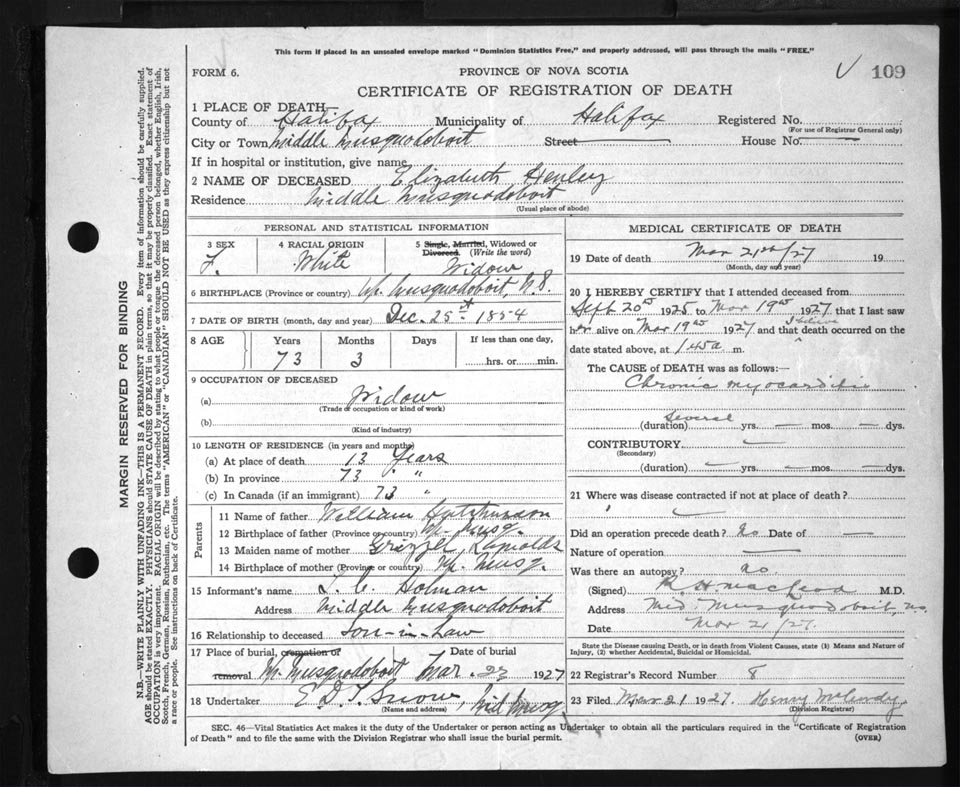 This form if placed in an unsealed envelope marked "Dominion Statistics Free," and properly addressed, will pass through the mails "FREE."
FORM 6.
PROVINCE OF NOVA SCOTIA
√ 109
CERTIFICATE OF REGISTRATION OF DEATH
1 PLACE OF DEATH—
County of Halifax Municipality of Halifax Registered No.
(For use of Registrar General only)
City or Town Middle Musquodoboit Street House No.
If in hospital or institution, give name
2 NAME OF DECEASED Elizabeth Henley
Residence Middle Musquodoboit
(Usual place of abode)
PERSONAL AND STATISTICAL INFORMATION
3 SEX F.
4 RACIAL ORIGIN White
5 Single, Married, Widowed or Divorced. (Write the word) Widow
6 BIRTHPLACE (Province or country) Up. Musquodoboit, N.S.
7 DATE OF BIRTH (month, day and year) Dec. 25th 1854
8 AGE Years Months Days If less than one day,
73 3 hrs. or min.
9 OCCUPATION OF DECEASED
(a) Widow
(Trade or occupation or kind of work)
(b)
(Kind of industry)
10 LENGTH OF RESIDENCE (in years and months)
(a) At place of death 13 Years
(b) In province 73 " "
(c) In Canada (if an immigrant) 73 "
Parents
11 Name of father William Hutchinson
12 Birthplace of father (Province or country) Up. Musq.
13 Maiden name of mother Grizzel Reynolds
14 Birthplace of mother (Province or country) Up. Musq.
15 Informant's name L. C. Holman
Address Middle Musquodoboit
16 Relationship to deceased Son-in-Law
17 Place of burial, cremation or removal Date of burial
Up. Musquodoboit Mar. 23 1927
18 Undertaker E. D. Snow, Mid Musq
(Name and address)
MEDICAL CERTIFICATE OF DEATH
19 Date of death Mar 21st/27 19
(Month, day and year)
20 I HEREBY CERTIFY that I attended deceased from
Sept 20th 1925 to Mar 19th 1927 that I last saw
her alive on Mar 19th 1927 and I believe that death occurred on the
date stated above, at 1 45 a m.
The CAUSE of DEATH was as follows:—
Chronic myocarditis
(duration) Several yrs. — mos. — dys.
CONTRIBUTORY —
(Secondary)
(duration) — yrs. — mos. — dys.
21 Where was disease contracted if not at place of death?
Did an operation precede death? No Date of —
Nature of operation —
Was there an autopsy? no
(Signed) R. H. MacLeod M.D.
Address Mid. Musquodoboit, N.S.
Date Mar 21/27.
State the Disease causing Death, or in death from Violent Causes, state (1) Means and Nature of Injury, (2) whether Accidental, Suicidal or Homicidal.
22 Registrar's Record Number 8
23 Filed Mar 21 1927. Henry
(Division Registrar)
SEC. 46—Vital Statistics Act makes it the duty of the Undertaker or person acting as Undertaker to obtain all the particulars required in the "Certificate of Registration
of Death" and to file the same with the Division Registrar who shall issue the burial permit.
(OVER)
MARGIN RESERVED FOR BINDING
N.B.—WRITE PLAINLY WITH UNFADING INK—THIS IS A PERMANENT RECORD. Every item of information should be carefully supplied.
AGE should be stated EXACTLY. PHYSICIANS should STATE CAUSE OF DEATH in plain terms, so that it may be properly classified. Exact statement of
OCCUPATION is very important. RACIAL ORIGIN will be described by stating to what people or tongue the deceased person belonged, whether English, Irish,
Scotch, French, German, Russian, Ruthenian, etc. The terms "AMERICAN" or "CANADIAN" SHOULD NOT BE USED as they express citizenship but not
a race or people. See instructions on back of Certificate.